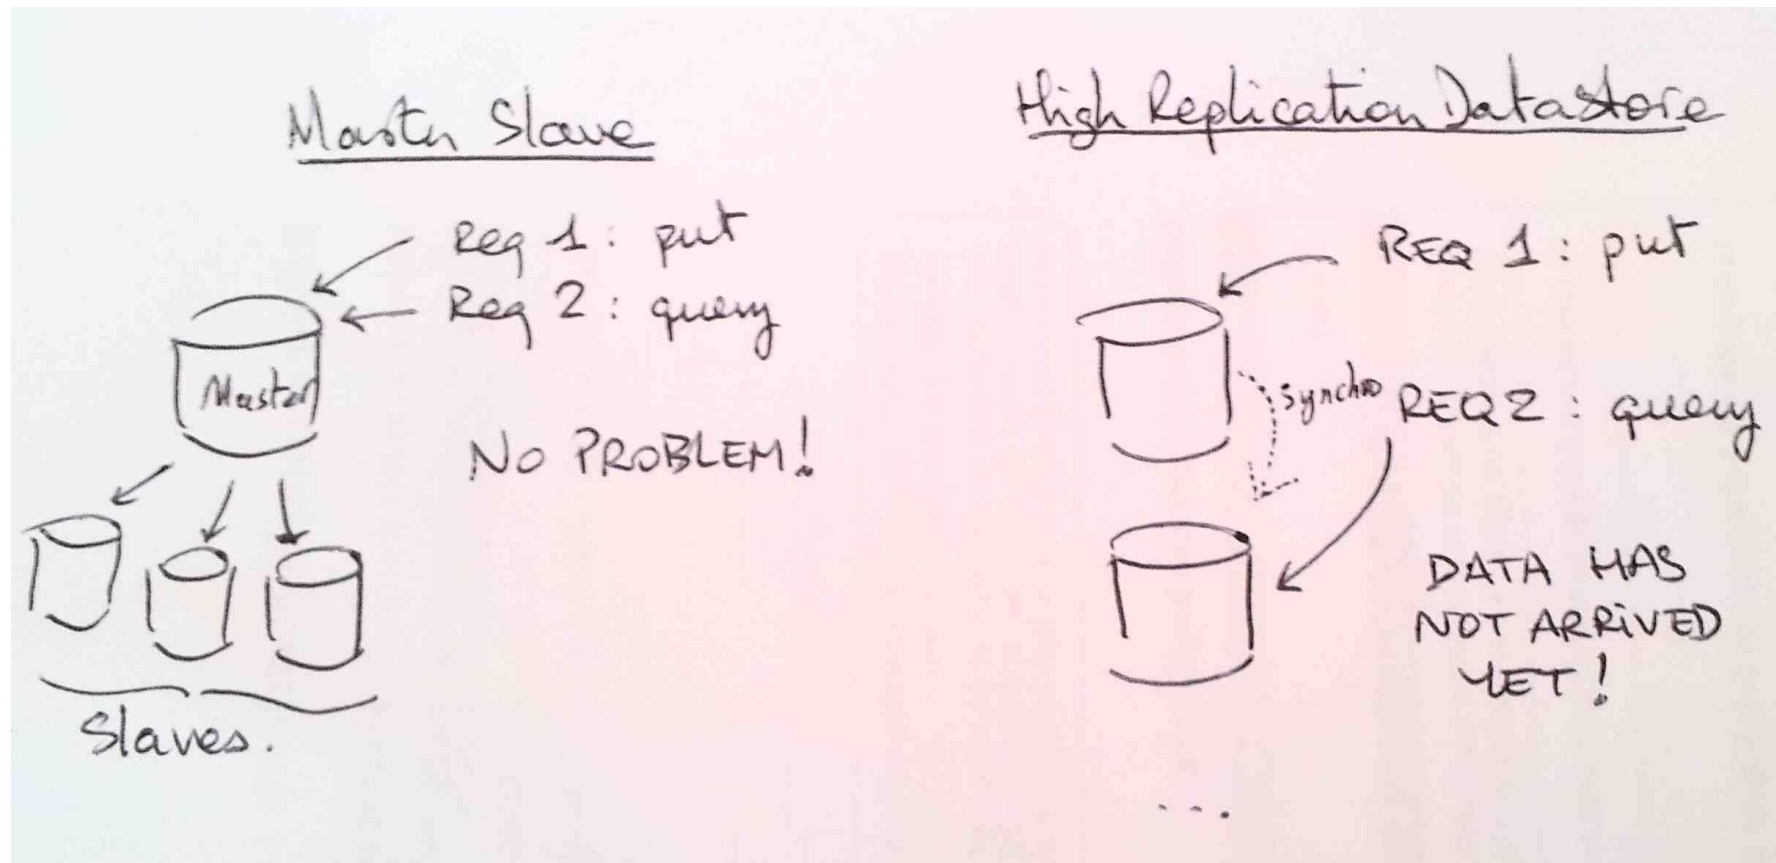 Master Slave
Req 1 : put
Req 2 : query
Master
NO PROBLEM!
Slaves.
High Replication Datastore
REQ 1 : put
synchro
REQ 2 : query
DATA HAS
NOT ARRIVED
YET !
...